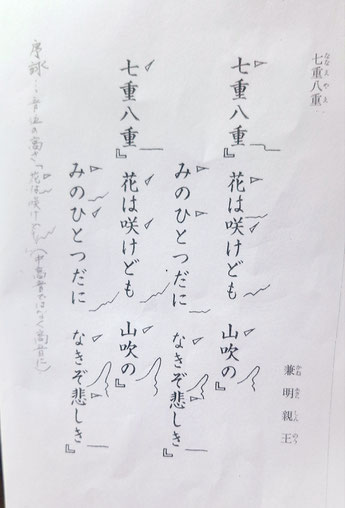 七重八重
ななえやえ
兼明親王
かねあきらしんのう
七重八重』花は咲けども 山吹の』
みのひとつだに なきぞ悲しき』
七重八重』花は咲けども 山吹の』
みのひとつだに なきぞ悲しき』
序詠…音程の高さ「花は咲けども」(中高音ではなく高音に)